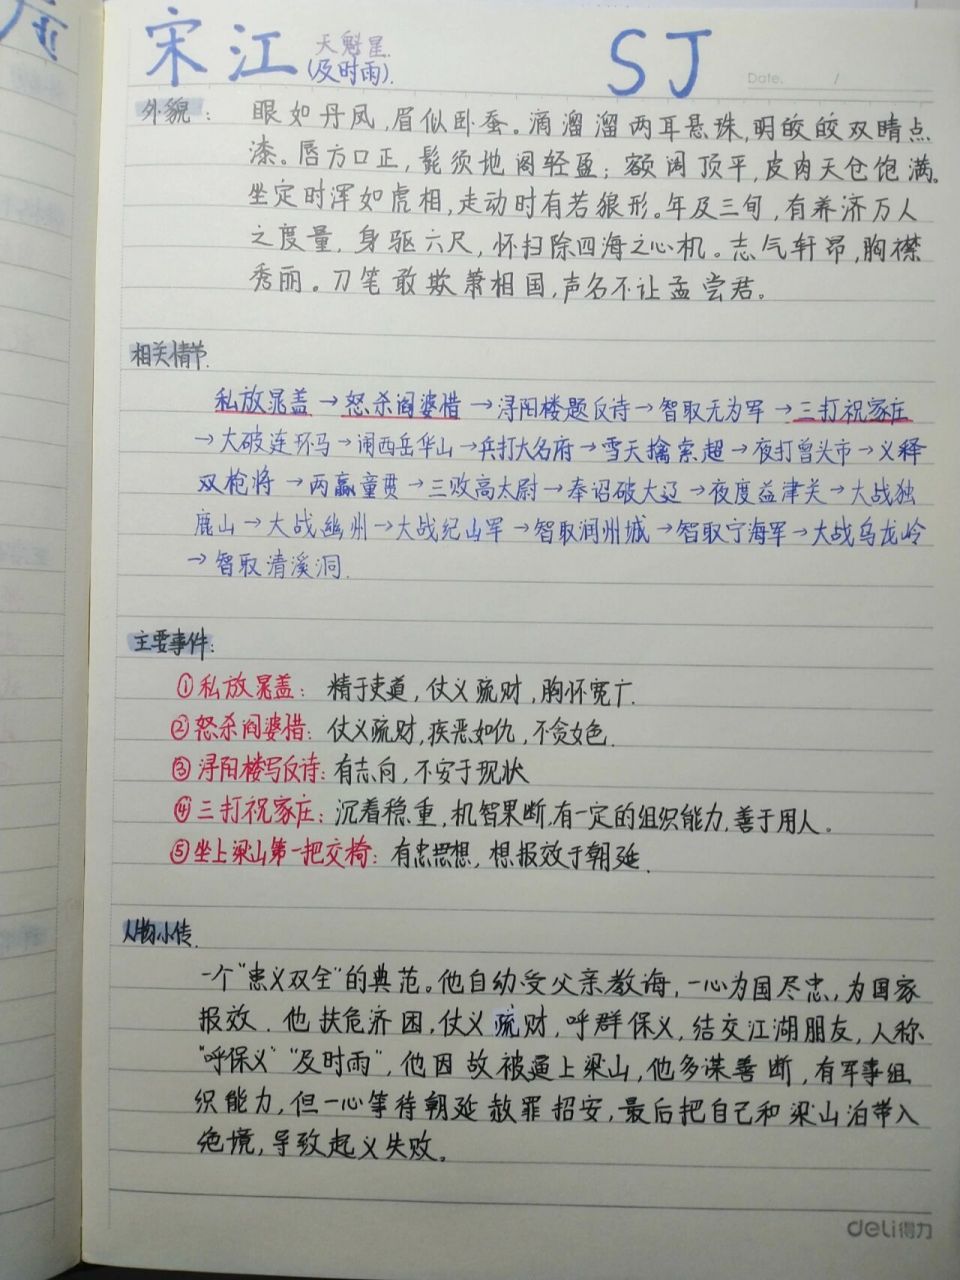 宋江 天魁星 (及时雨). SJ
Date. /
外貌: 眼如丹凤,眉似卧蚕。滴溜溜两耳悬珠,明皎皎双睛点
漆。唇方口正,髭须地阁轻盈;额阔顶平,皮肉天仓饱满。
坐定时浑如虎相,走动时有若狼形。年及三旬,有养济万人
之度量,身躯六尺,怀扫除四海之心机。志气轩昂,胸襟
秀丽。刀笔敢欺萧相国,声名不让孟尝君。
相关情节.
私放晁盖→怒杀阎婆惜→浔阳楼题反诗→智取无为军→三打祝家庄
→大破连环马→闹西岳华山→兵打大名府→雪天擒索超→夜打曾头市→义释
双枪将→两赢童贯→三败高太尉→奉诏破大辽→夜度益津关→大战独
鹿山→大战幽州→大战纪山军→智取润州城→智取宁海军→大战乌龙岭
→智取清溪洞.
主要事件:
①私放晁盖: 精于吏道,仗义疏财,胸怀宽广.
②怒杀阎婆惜: 仗义疏财,疾恶如仇,不贪女色.
③浔阳楼写反诗: 有志向,不安于现状
④三打祝家庄: 沉着稳重,机智果断,有一定的组织能力,善于用人。
⑤坐上梁山第一把交椅: 有忠思想,想报效于朝廷.
人物小传.
一个"忠义双全"的典范。他自幼受父亲教诲,一心为国尽忠,为国家
报效.他扶危济困,仗义疏财,呼群保义,结交江湖朋友,人称
"呼保义""及时雨",他因故被逼上梁山,他多谋善断,有军事组
织能力,但一心等待朝廷赦罪招安,最后把自己和梁山泊带入
绝境,导致起义失败。
deli得力